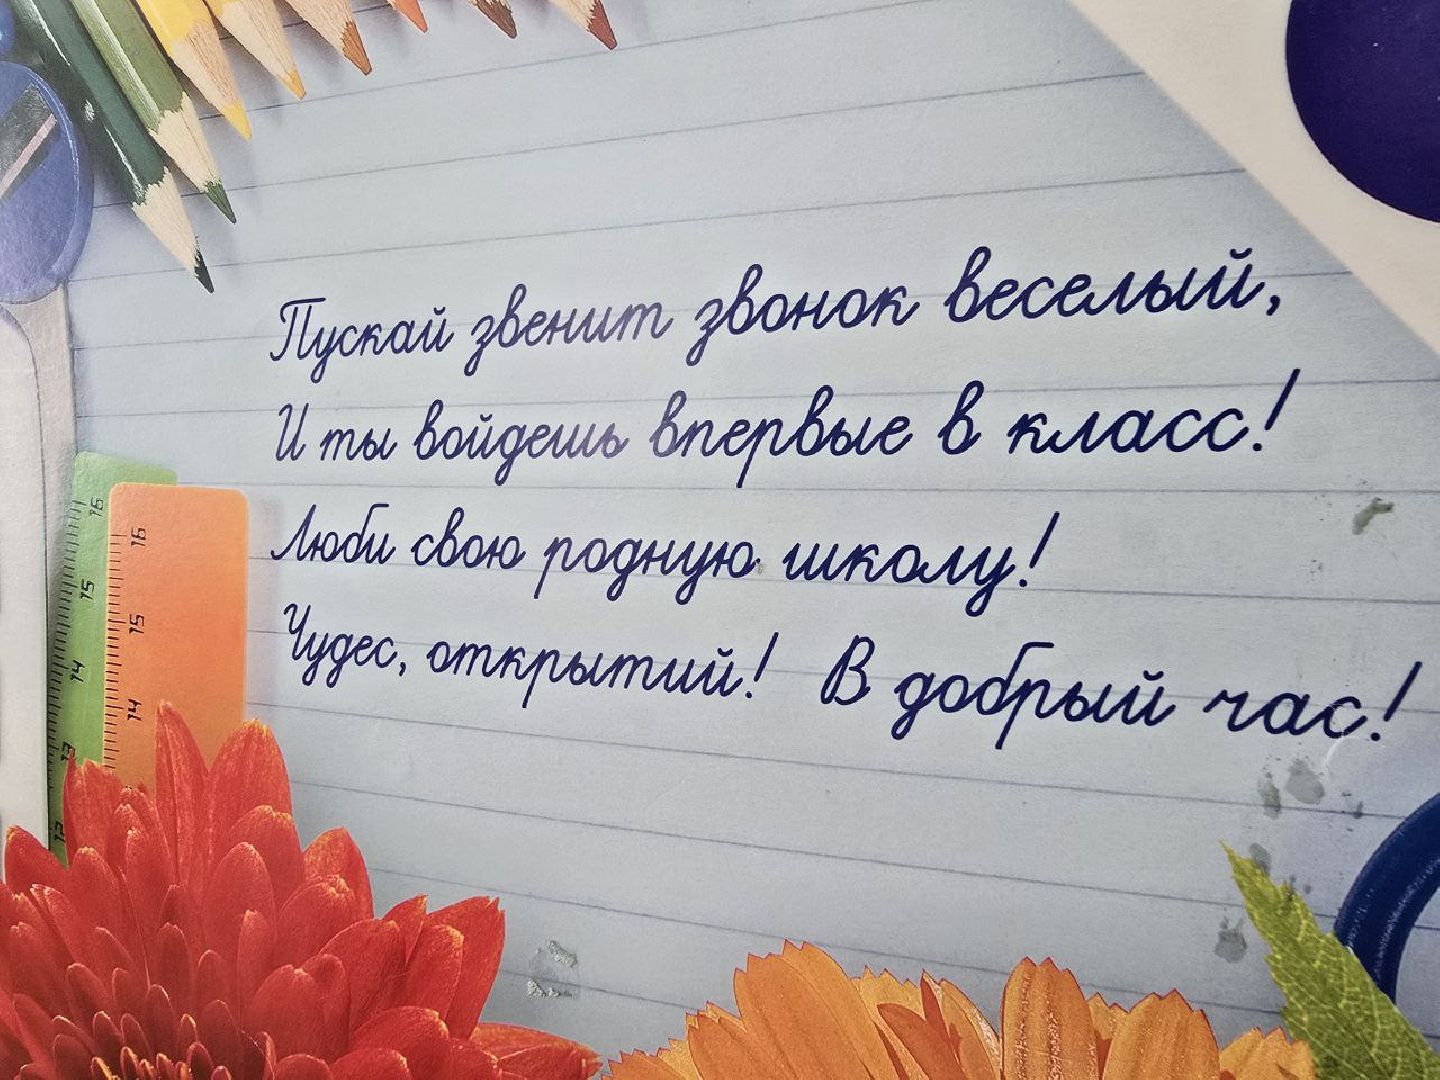 Пускай звенит звонок веселый,
И ты войдешь впервые в класс!
Люби свою родную школу!
Чудес, открытий! В добрый час!
16
15
14
13
12
16
15
14